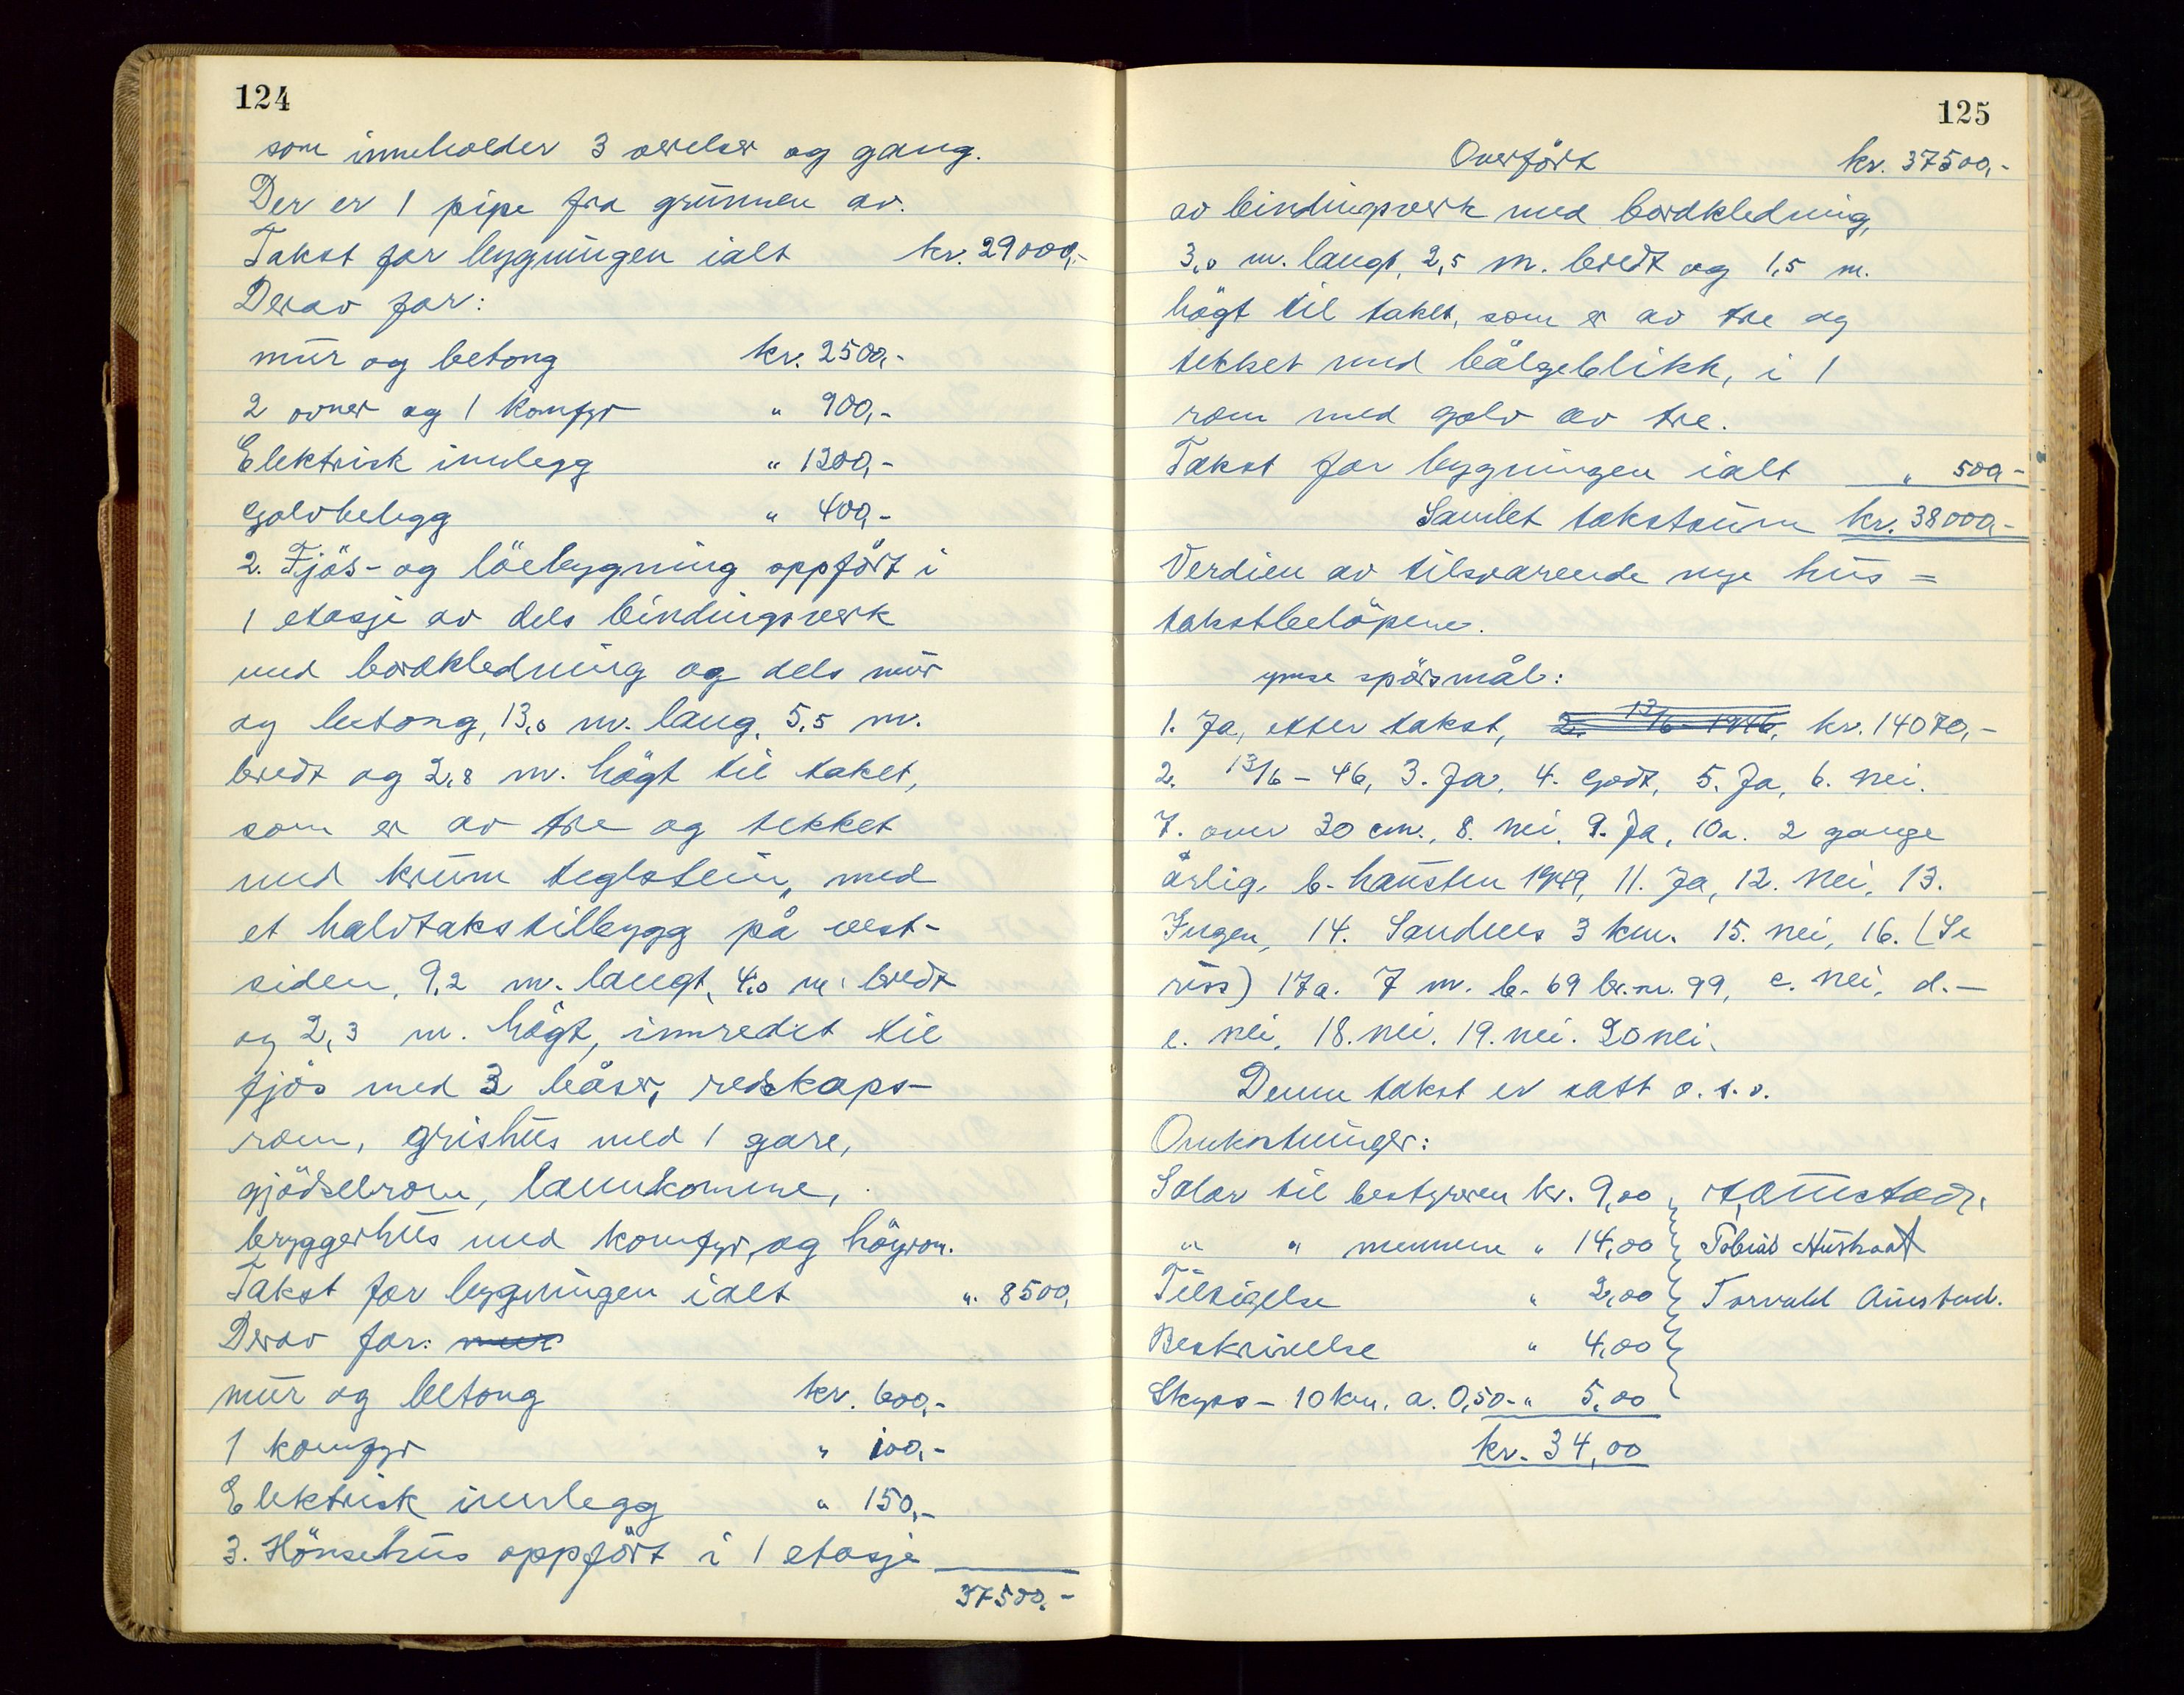 124
som inneholder 3 verelser og gang.
Der er 1 pipe fra grunnen av.
Takst for bygningen ialt kr. 29000,-
Derav for:
mur og betong kr. 2500,-
2 ovner og 1 komfyr " 900,-
Elektrisk innlegg " 1200,-
Golvbelegg " 400,-
2. Fjös- og löebygning oppfört i
1 etasje av dels bindingsverk
med bordkledning og dels mur
og betong, 13,0 m. lang, 5,5 m.
bredt og 2,8 m. högt til taket,
som er av tre og tekket
med krum teglstein, med
et halvtakstilbygg på vest-
siden, 9,2 m. langt, 4,0 m. bredt
og 2,3 m. högt, innredet til
fjös med 3 båser, redskaps-
rom, grishus med 1 gare,
gjödselrom, lannkomme,
bryggerhus med komfyr, og höyrom.
Takst for bygningen ialt " 8500,
Derav for: mur
mur og betong kr. 600,-
1 komfyr " 100,-
Elektrisk innlegg " 150,-
3. Hönsehus oppfört i 1 etasje
37500,-
125
Overfört kr. 37500,-
av bindingsverk med bordkledning,
3,0 m. langt, 2,5 m. bredt og 1,5 m.
högt til taket, som er av tre og
tekket med bölgeblikk, i 1
rom med golv av tre.
Takst for bygningen ialt " 500,-
Samlet takstsum kr. 38000,-
Verdien av tilsvarende nye hus =
takstbelöpene.
ymse spörsmål:
1. Ja, etter takst, 2. 13/6-1946, kr. 14070,-
2. 13/6-46, 3. Ja, 4. Godt, 5. Ja, 6. Nei.
7. over 30 cm., 8. Nei, 9. Ja, 10a. 2 gange
årlig, b. hausten 1949, 11. Ja, 12. Nei, 13.
Ingen, 14. Sandnes 3 km. 15. Nei, 16. (Se
riss) 17a. 7 m. b. 69 br.nr. 99, c. Nei, d.-
e. Nei, 18. Nei. 19. Nei. 20 Nei.
Denne takst er satt o. s. v.
Omkostninger:
Salær til bestyreren kr. 9,00
" " mennene " 14,00 Tobias
Tilsigelse " 2,00 Torvald Austad.
Beskrivelse " 4,00
Skyss - 10 km. a. 0,50 - " 5,00
kr. 34,00